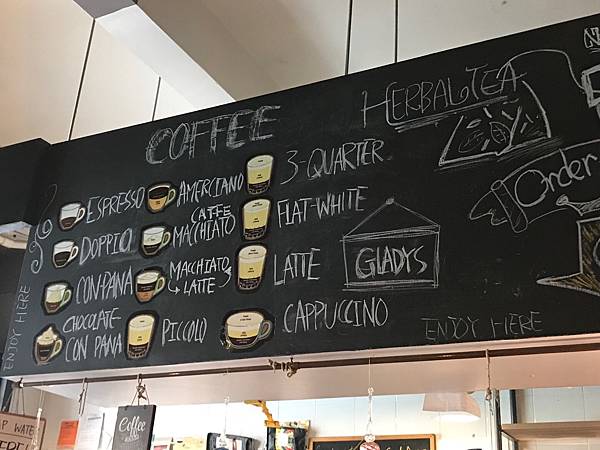 COFFEE
ESPRESSO
DOPPIO
CON-PANA
CHOCOLATE
CON PANA
AMERCIANO
CAFFE
MACCHIATO
MACCHIATO
LATTE
PICCOLO
3-QUARTER
FLAT-WHITE
LATTE
CAPPUCCINO
HERBAL TEA
GLADYS
Order
ENJOY HERE
ENJOY HERE
Coffee